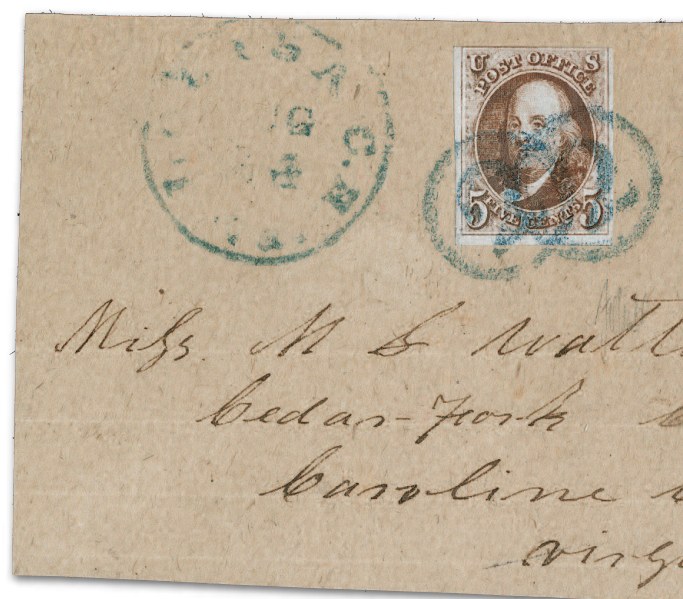 U S
POST OFFICE
5 FIVE CENTS 5
C.H
Miss. M S Watt
Cedar-Fork
Caroline
virg